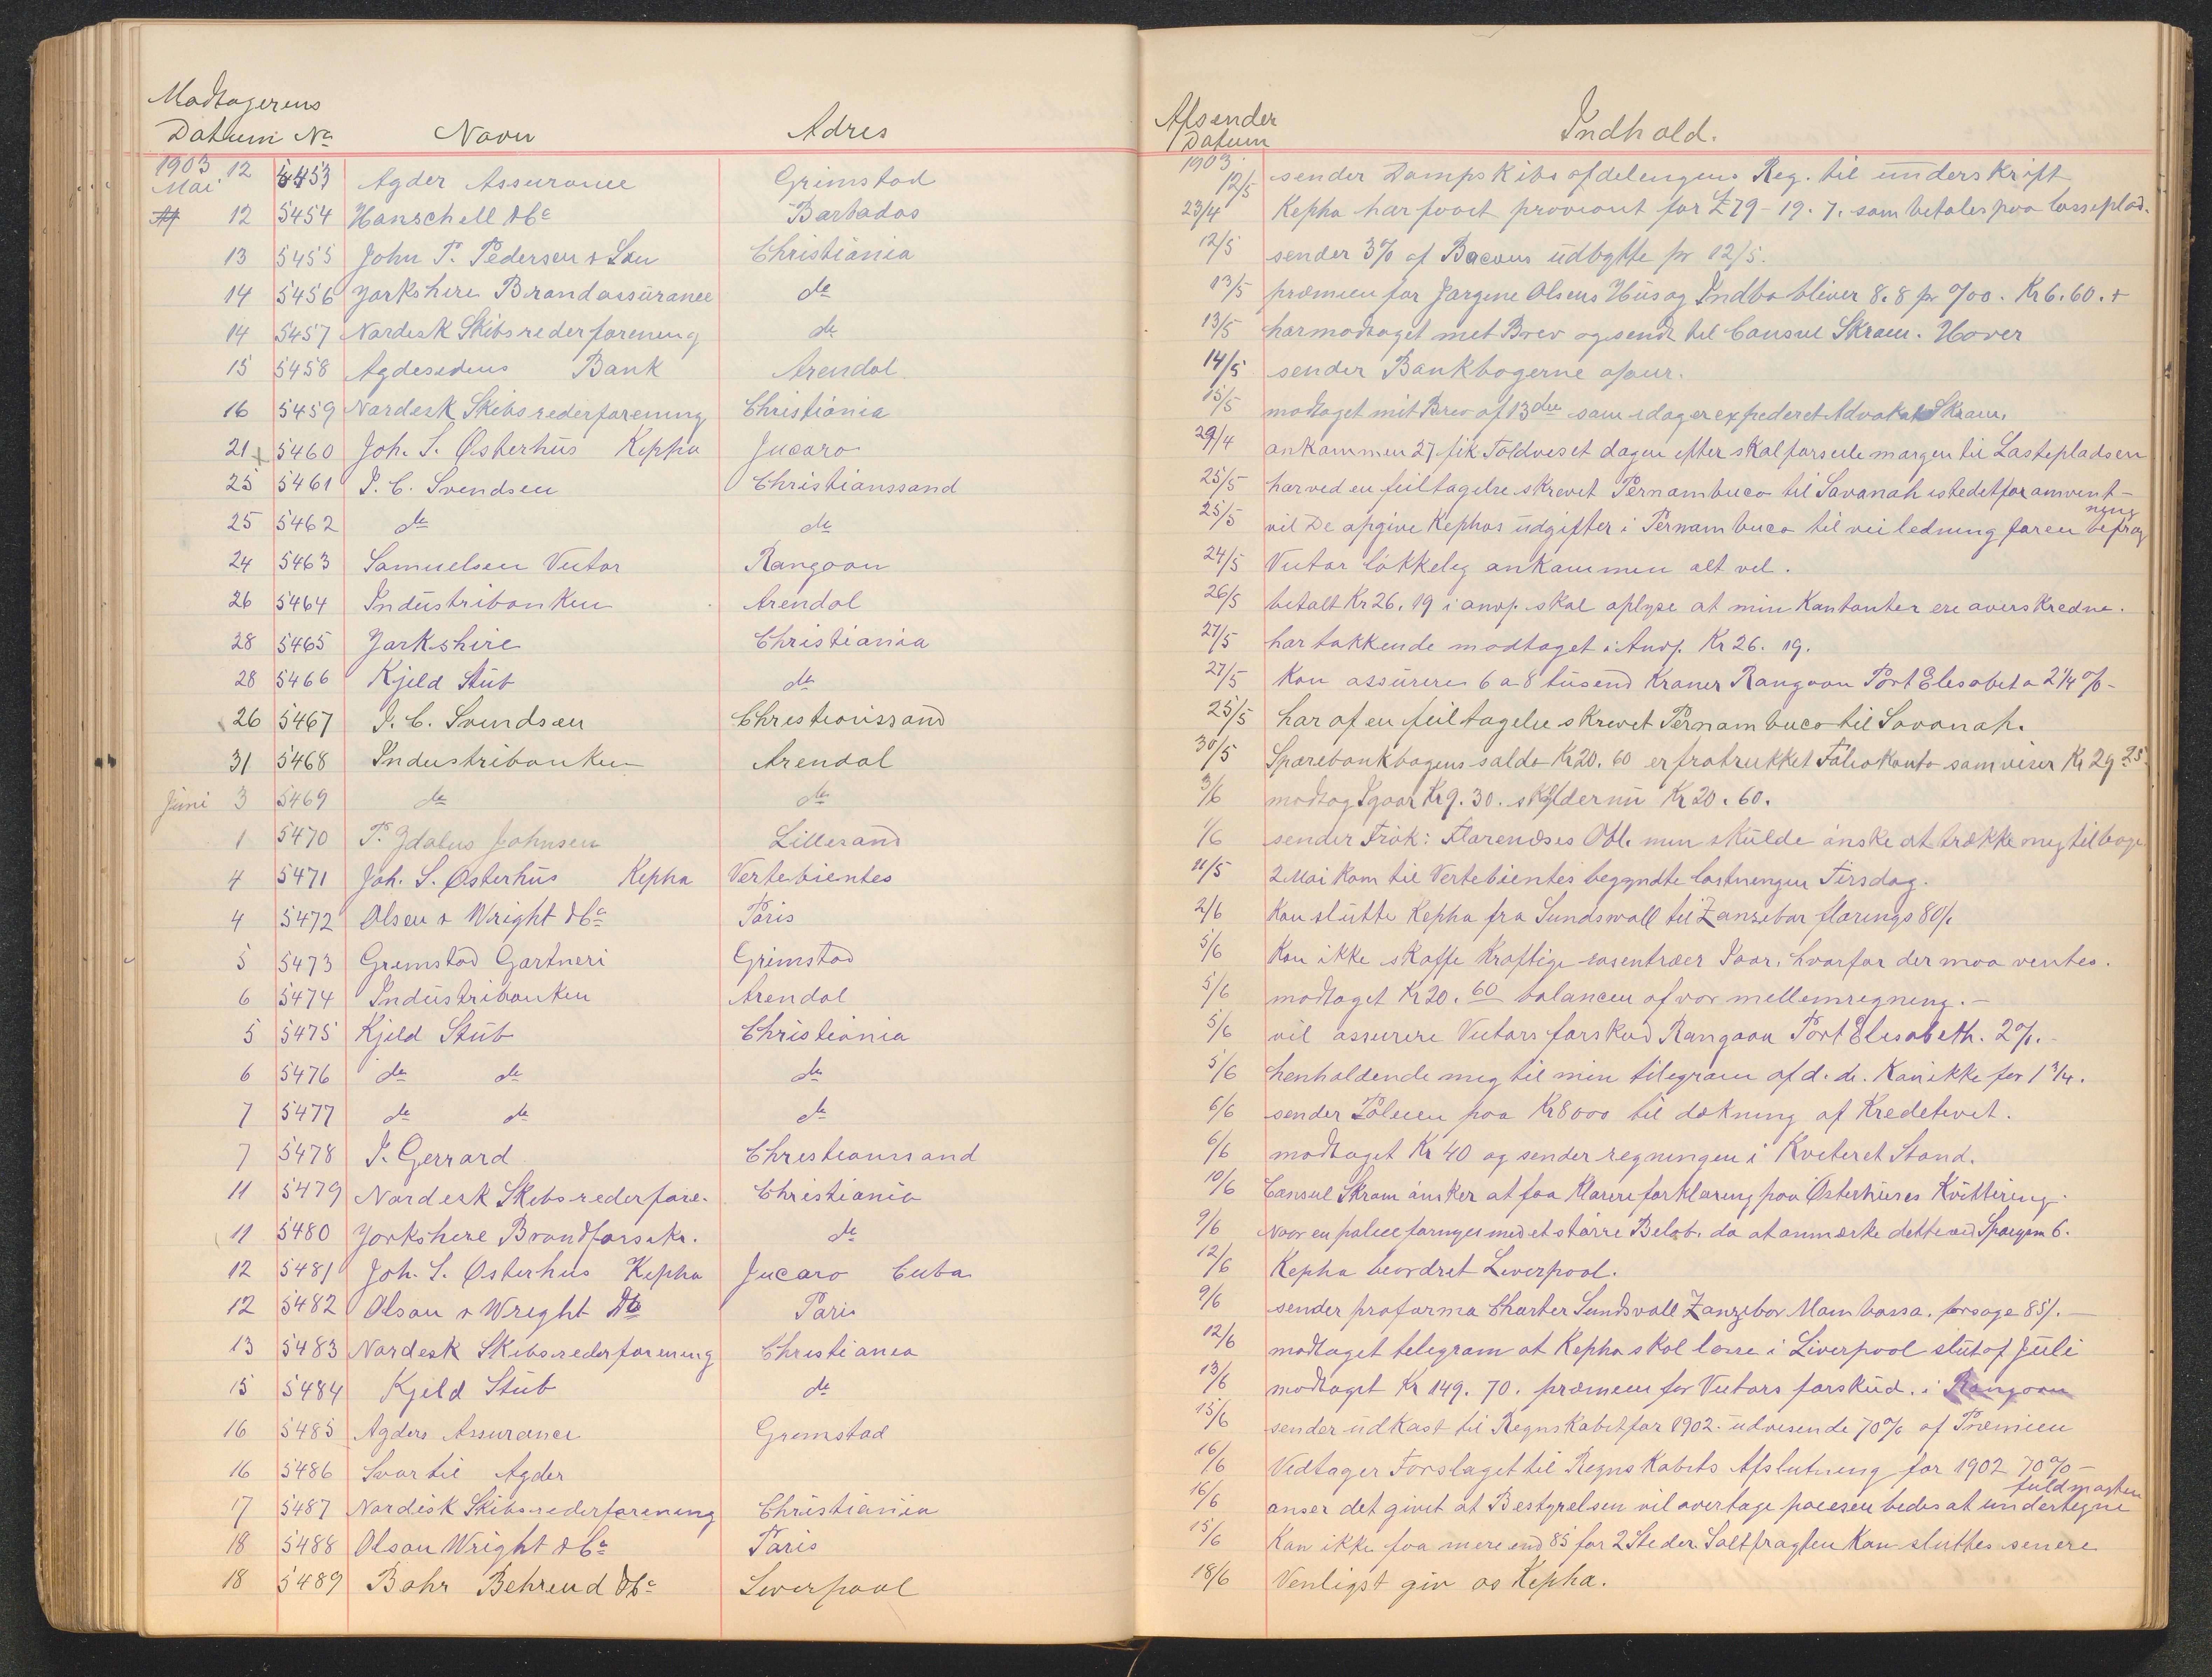 Modtagerens Afsender
Datum No Navn Adres Datum Indhold.
1903 Mai 12 5453 Agder Assurance Grimstad 1903 12/5 sender Dampskibsafdelingens Reg. til underskrift
12 5454 Hanschell &Co Barbados 23/4 Kepha har faaet proviant for £79-19.7. som betales paa losseplad.
13 5455 John P. Pedersen & Søn Christiania 12/5 sender 3% af Bacons udbytte pr 12/5.
14 5456 Yorkshire Brandassurance do 13/5 præmien for Jørgine Olsens Hus og Indbo bliver 8.8 pr %oo. Kr 6.60.
14 5457 Nordisk Skibsrederforening do 13/5 har modtaget mit Brev og sendt til Consul Skram. Hover
15 5458 Agdesidens Bank Arendal 14/5 sender Bankbøgerne
16 5459 Nordisk Skibsrederforening Christiania 15/5 modtaget mit Brev af 13de som idag er expederet Advokat Skram.
21 x 5460 Joh. S. Østerhus Kepha Jucaro 29/4 ankommen 27 fik Toldvæset dagen efter skal forseile morgen til Lastepladsen
25 5461 I. C. Svendsen Christianssand 25/5 har ved en feiltagelse skrevet Pernambuco til Savanah istedetfor omvent-
ning
25 5462 do do 25/5 vil De opgive Kephas udgifter i Pernambuco til veiledning for en befrag
24 5463 Samuelsen Victor Rangoon 24/5 Victor lökkelig ankommen alt vel.
26 5464 Industribanken Arendal 26/5 betalt Kr 26.19 i anvp. skal oplyse at min Kontanter ere overskredne.
28 5465 Yorkshire Christiania 27/5 har takkende modtaget i Anvp. Kr 26.19.
28 5466 Kjeld Stub do 27/5 Kan assurere 6 a 8 tusend Kroner Rangoon Port Elesabet a 2 1/4 %-
26 5467 I. C. Svendsen Christianssand 25/5 har af en feiltagelse skrevet Pernambuco til Savanah.
31 5468 Industribanken Arendal 30/5 Sparebankbogens saldo Kr 20.60 er fratrukket Foliokonto som viser Kr 29 25
Juni 3 5469 do do 3/6 modtog Igaar Kr 9.30. skylder nu Kr 20.60.
1 5470 P. Ydalus Johnsen Lillesand 1/6 sender Frök: Obl. men skulde önske at trække mig tilbage
4 5471 Joh. S. Østerhus Kepha Vertebientes 11/5 2 Mai kom til Vertebientes begyndte lastningen Tirsdag.
4 5472 Olsen & Wright &Co Paris 2/6 Kan slutte Kepha fra Sundswall til Zanzebar flærings 80/.
5 5473 Gremstad Gartneri Grimstad 5/6 Kan ikke skaffe kraftige rosentræer Iaar, hvorfor der maa ventes.
6 5474 Industribanken Arendal 5/6 modtaget Kr 20.60 balancen af vor mellemregning.-
5 5475 Kjeld Stub Christiania 5/6 vil assurere Victors forskud Rangoon Port Elesabeth. 2%.-
6 5476 do do do 5/6 henholdende mig til min tilegram af d.d. Kan ikke for 1 3/4.
7 5477 do do do 6/6 sender Polisen paa Kr 8000 til dækning af Kredetivet.
7 5478 I. Gerrard Christianssand 6/6 modtaget Kr 40 og sender regningen i Kviteret Stand.
11 5479 Nordisk Skibsrederfore. Christiania 10/6 Consul Skram önsker at faa klarere forklaring paa Østerhuses Kvittering.
11 5480 Yorkshire Brandforsikr. do 9/6 Naar en police fornyes med et större Belöb, da at anmærke dette ved Spørgsm 6.
12 5481 Joh. S. Østerhus Kepha Jucaro Cuba 12/6 Kepha beordret Leverpool.
12 5482 Olsen & Wright &Co Paris 9/6 sender proforma Charter Sundsvall Zanzebar Mombassa, forsøge 85/.-
13 5483 Nordisk Skibsrederforening Christiania 12/6 modtaget telegram at Kepha skal losse i Liverpool slut af Juli
15 5484 Kjeld Stub do 13/6 modtaget Kr 149.70. præmien for Victors forskud. i Rangoon
16 5485 Agders Assurance Gremstad 15/6 sender udkast til Regnskabet for 1902. udvisende 70% af Præmien
16 5486 Svar til Agder 16/6 Vedtager Forslaget til Regnskabets Afslutning for 1902 70%-
fuldmagten
17 5487 Nordisk Skibsrederforening Christiania 16/6 anser det givet at Bestyrelsen vil overtage bedes at undertegne
18 5488 Olsen Wright &Co Paris 15/6 Kan ikke faa mere end 85 for 2 Steder. Saltfragten kan sluttes senere
18 5489 Bahr Behrend &Co Leverpool 18/6 Venligst giv os Kepha.